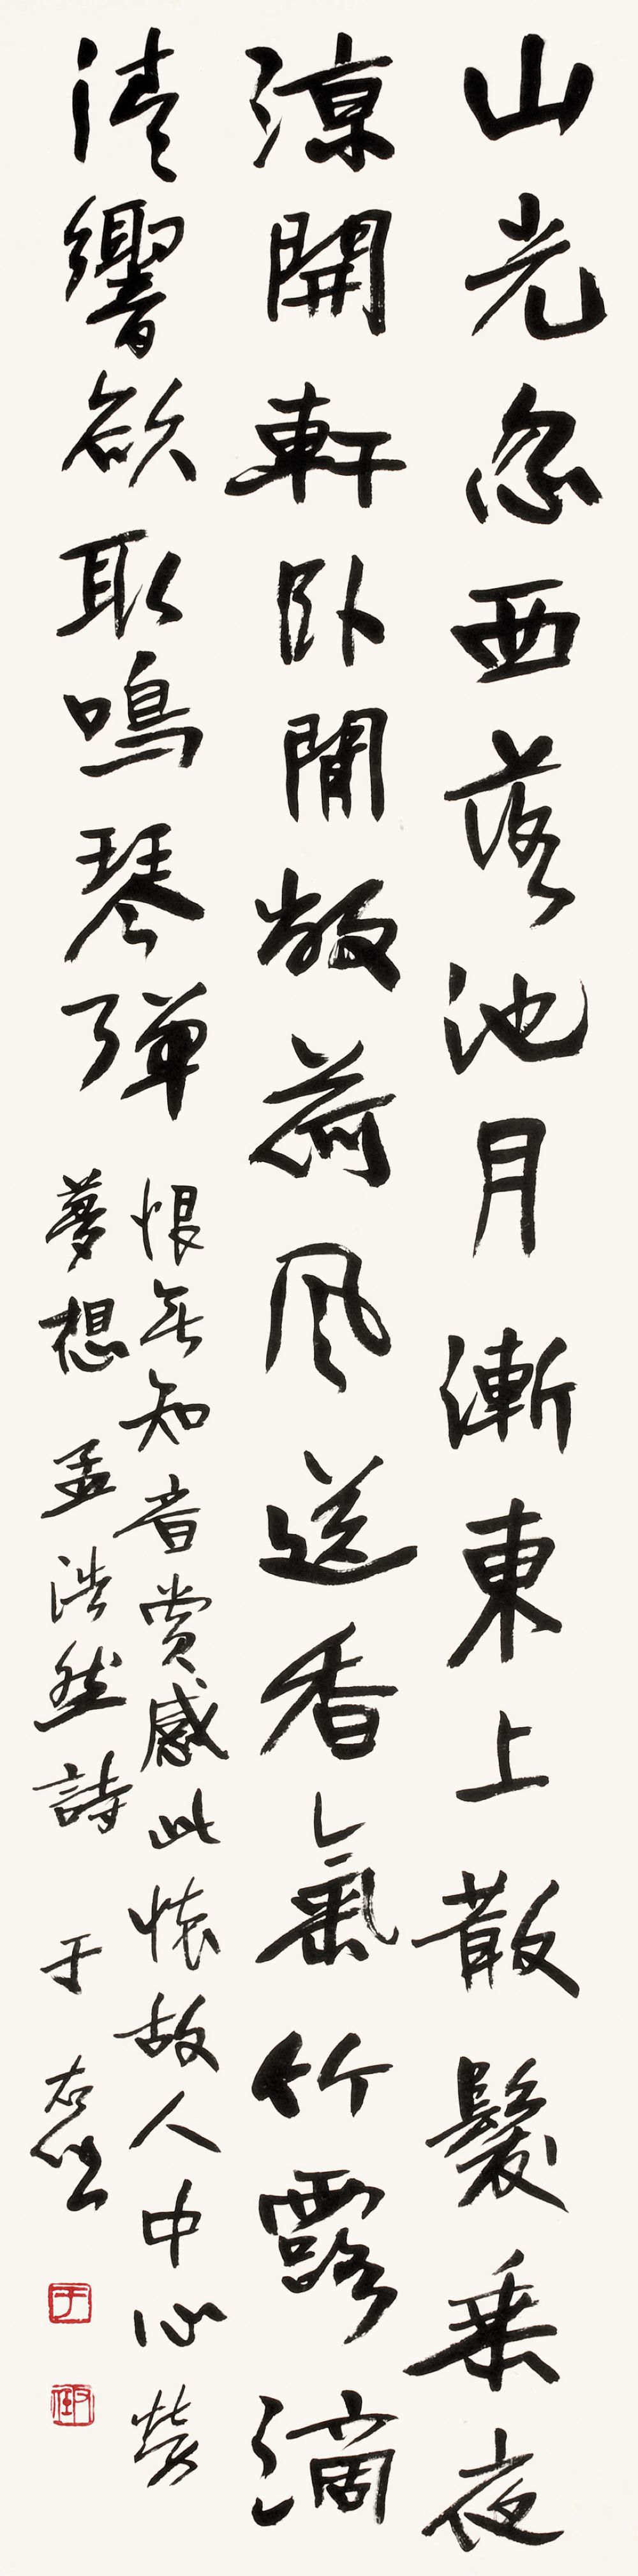 山光忽西落池月漸東上散髮乘夜
涼開軒臥閒敞荷風送香氣竹露滴
清響欲取鳴琴彈
恨無知音賞感此懷故人中心勞
夢想 孟浩然詩 于右任
于